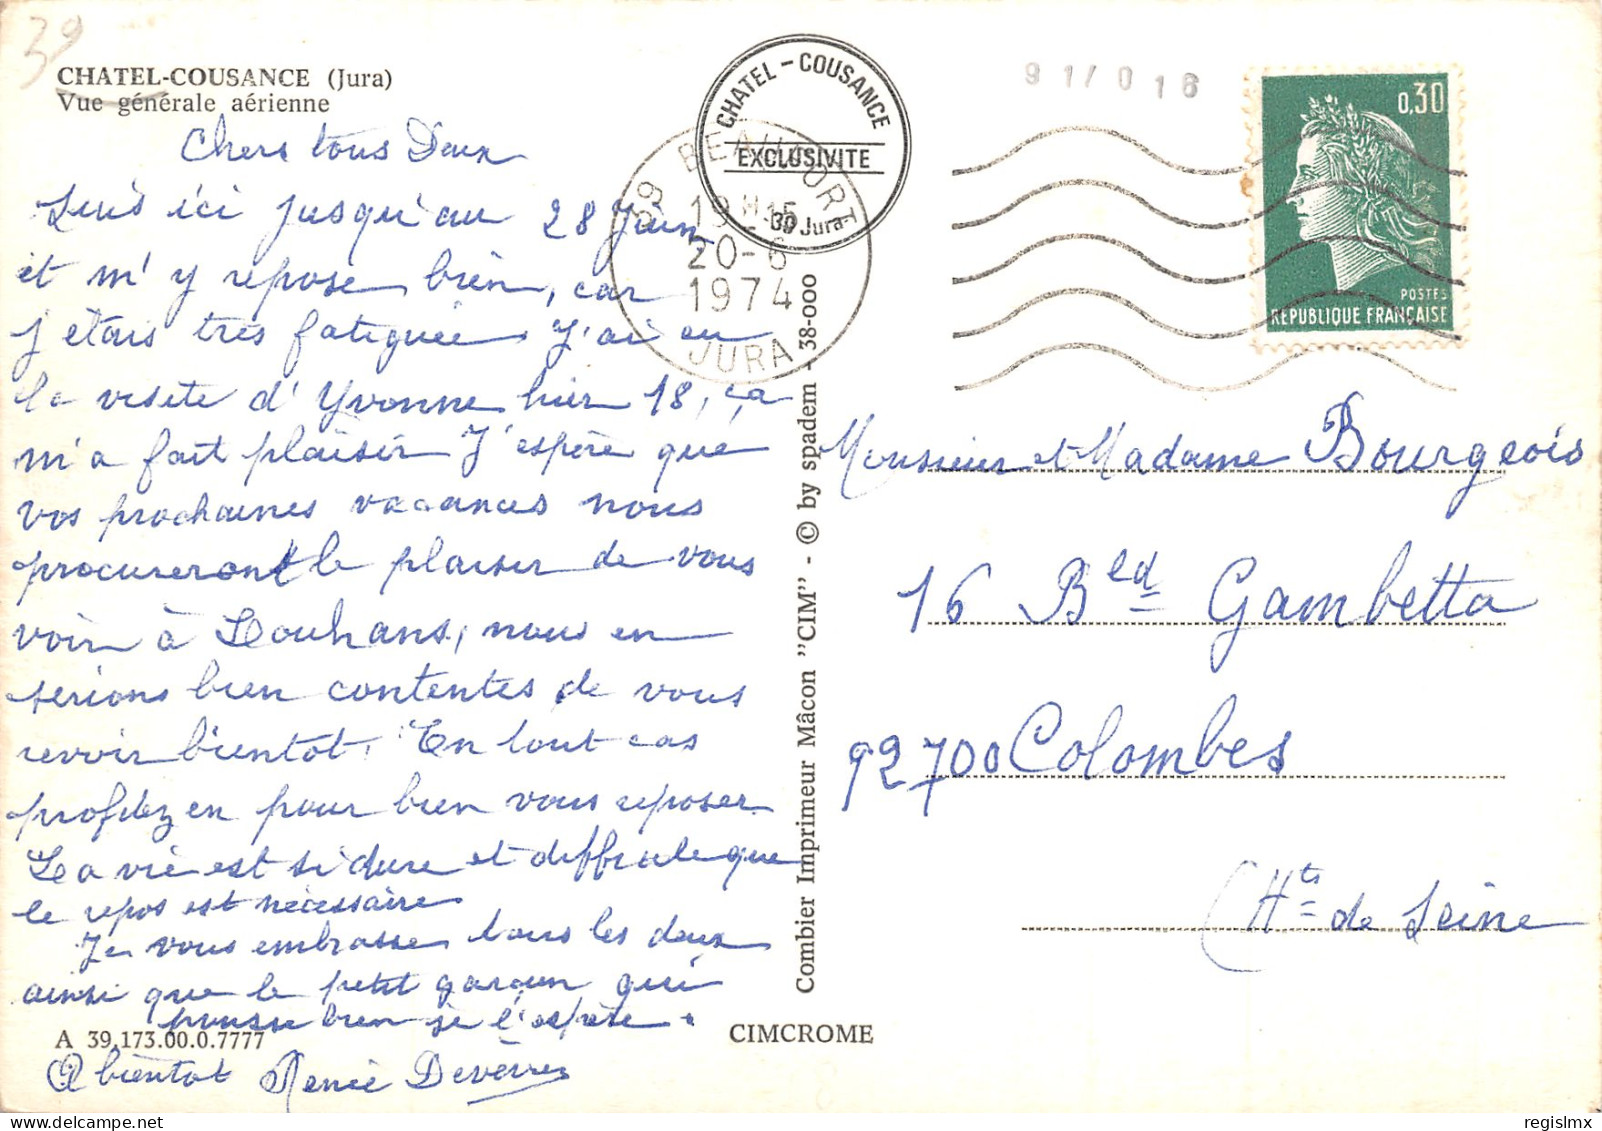 39
CHATEL-COUSANCE (Jura)
Vue générale aérienne
Chers tous Deux
Suis ici jusqu'au 28 Juin
et m'y repose bien, car
j'etais très fatiguée J'ai eu
la visite d'Yvonne hier 18, ça
m'a fait plaisir J'espère que
vos prochaines vacances nous
procureront le plaisir de vous
voir à Louhans, nous en
serions bien contentes de vous
revoir bientot. En tout cas
profitez en pour bien vous reposer
La vie est si dure et difficile que
le repos est nécessaire
Je vous embrasse tous les deux
ainsi que le petit garçon qui
pousse bien je l'espère.
A 39.173.00.0.7777
A bientot Renée
CIMCROME
Combier Imprimeur Mâcon "CIM" - © by spadem - 38-000
CHATEL-COUSANCE
EXCLUSIVITE
39 Jura
39 BEAUFORT
19H15
20-6
1974
JURA
91/018
0,30
POSTES
REPUBLIQUE FRANÇAISE
Monsieur et Madame Bourgeois
16 Bled Gambetta
92700 Colombes
(Hts de Seine
regislmx